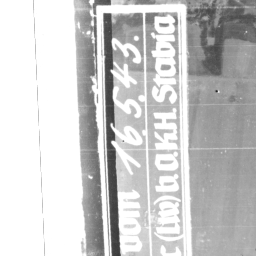 vom 16.5.43.
c (Lw) b. O.K.H. Stabia